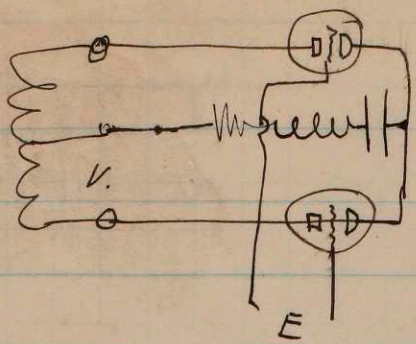 V.
E